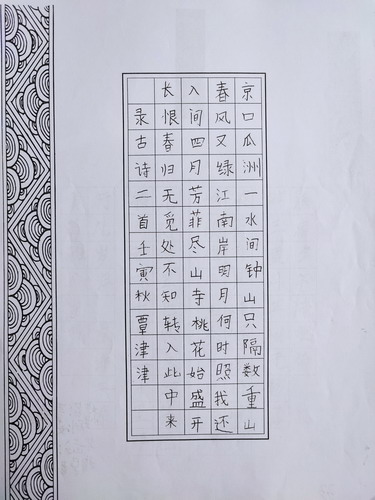 京口瓜洲一水间钟山只隔数重山
春风又绿江南岸明月何时照我还
入间四月芳菲尽山寺桃花始盛开
长恨春归无觅处不知转入此中来
录古诗二首壬寅秋覃津津